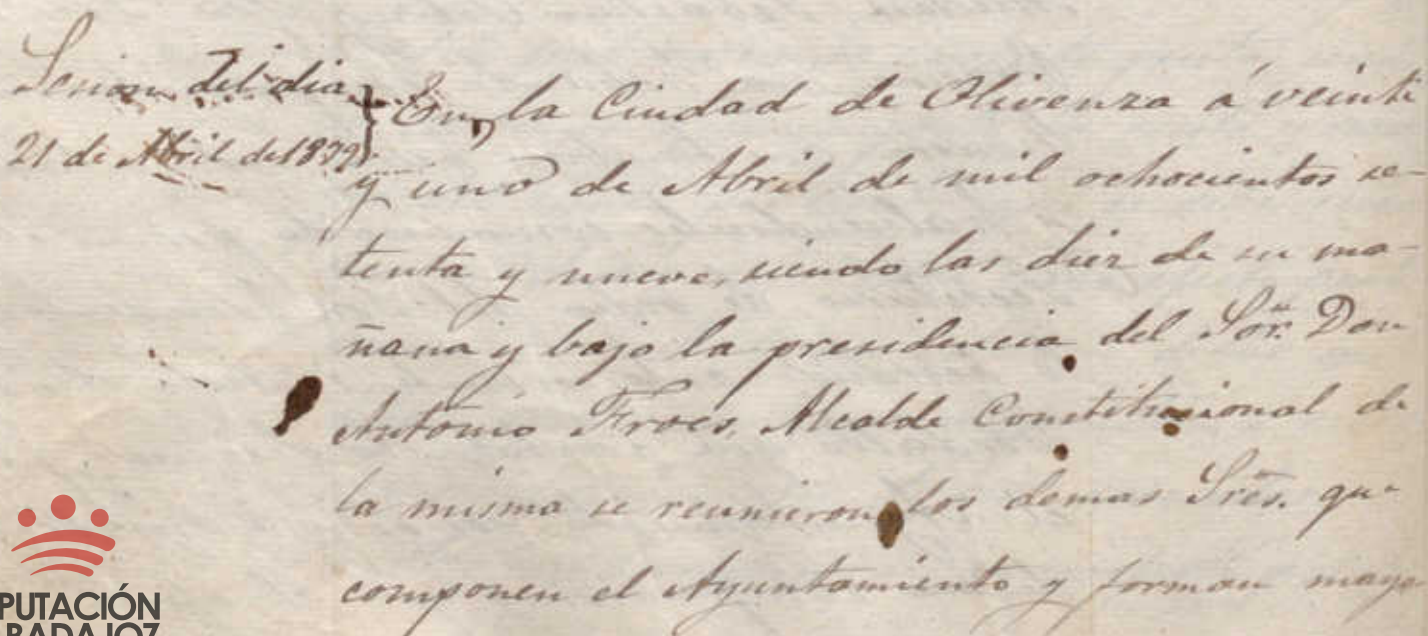 Sesion del dia
21 de Abril de 1879
En la Ciudad de Olivenza á veinte
y uno de Abril de mil ochocientos se-
tenta y nueve, siendo las diez de su ma-
ñana y bajo la presidencia del Sor. Don
Antonio Froes, Alcalde Constitucional de
la misma se reunieron los demas Sres. que
componen el Ayuntamiento y forman mayo
PUTACIÓN
BADAJOZ